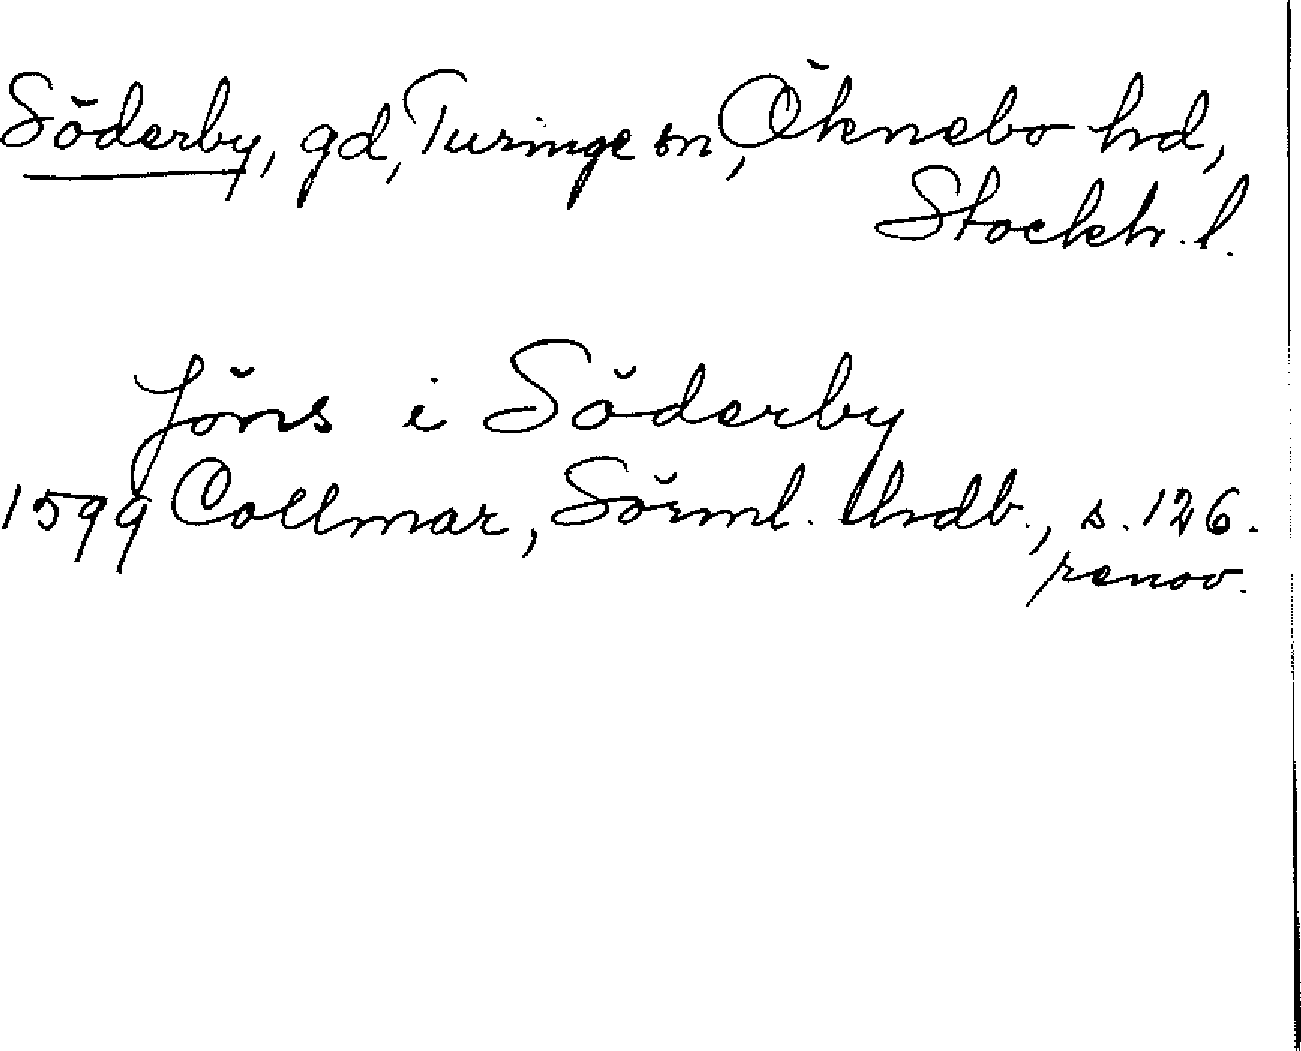 Söderby, gd, Turinge sn, Öknebo hd,
Stockh. l.
Jöns i Söderby
1599 Collmar, Sörml. hrdb., s. 126.
renov.